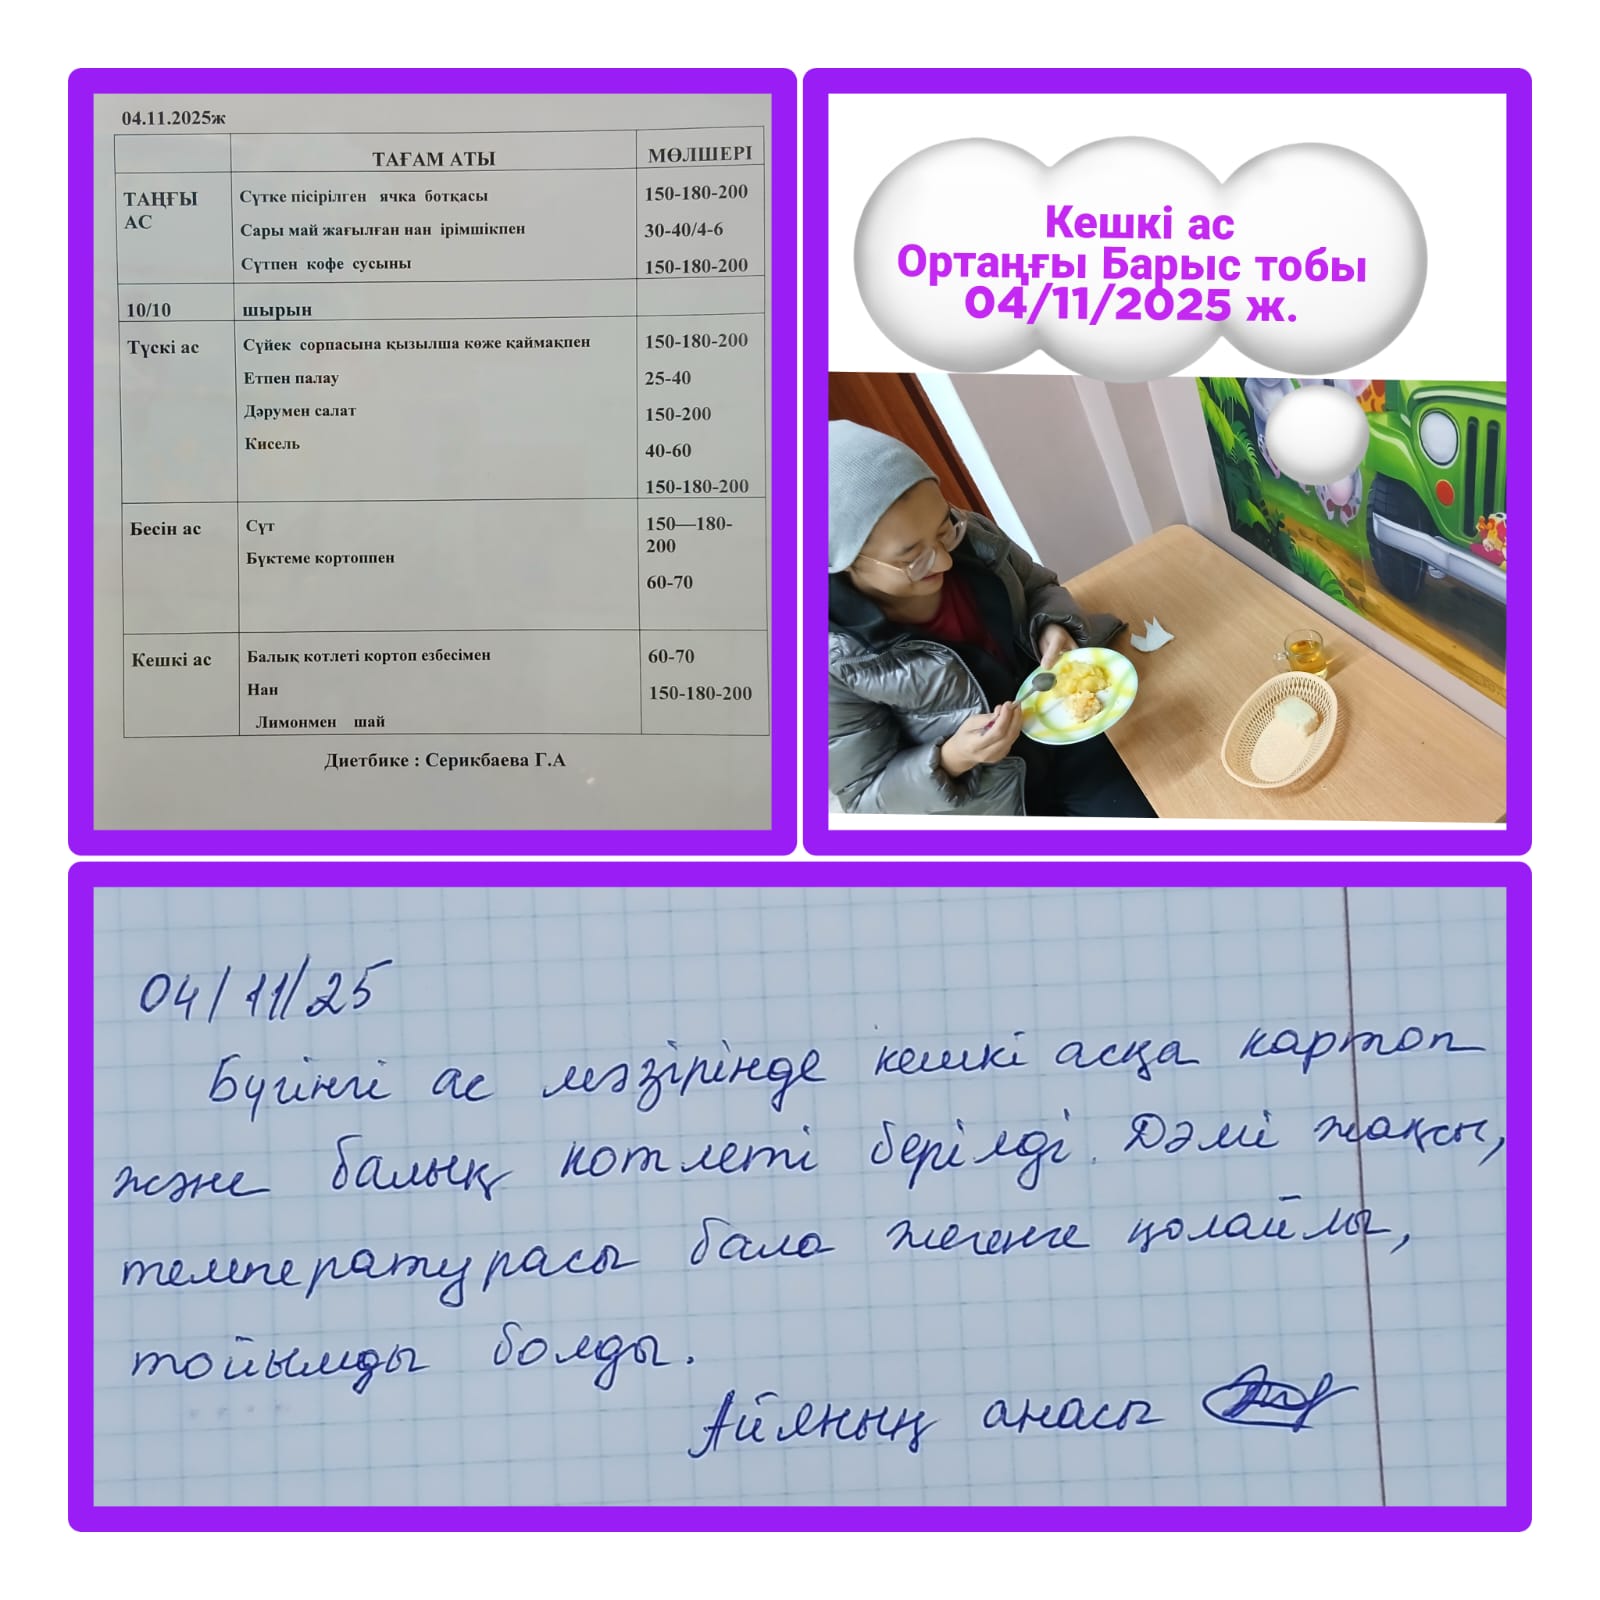 04.11.2025ж
ТАҒАМ АТЫ МӨЛШЕРІ
ТАҢҒЫ АС
Сүтке пісірілген ячка ботқасы 150-180-200
Сары май жағылған нан ірімшікпен 30-40/4-6
Сүтпен кофе сусыны 150-180-200
10/10 шырын
Түскі ас Сүйек сорпасына қызылша көже қаймақпен 150-180-200
Етпен палау 25-40
Дәрумен салат 150-200
Кисель 40-60
150-180-200
Бесін ас Сүт 150—180-
200
Бүктеме кортоппен 60-70
Кешкі ас Балық котлеті кортоп езбесімен 60-70
Нан 150-180-200
Лимонмен шай
Диетбике : Серикбаева Г.А
Кешкі ас
Ортаңғы Барыс тобы
04/11/2025 ж.
04/11/25
Бүгінгі ас мәзірінде кешкі асқа картоп
және балық котлеті берілді. Дәмі жақсы,
температурасы бала жегенге қолайлы,
тойымды болды.
Айяның анасы